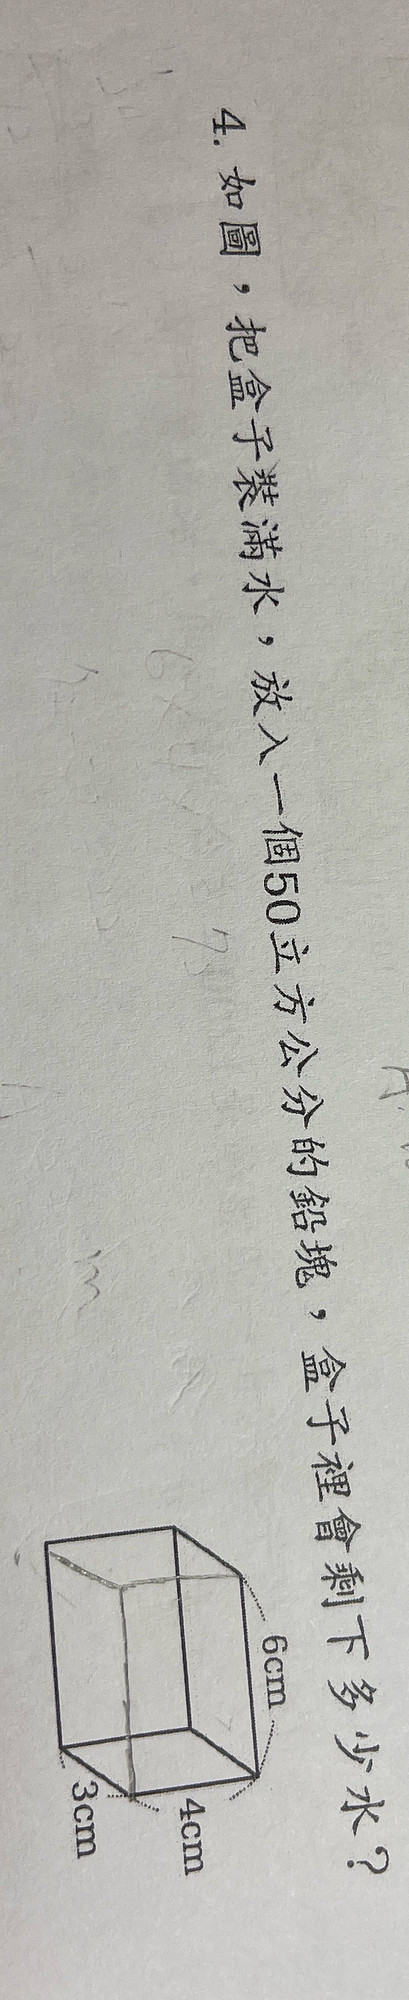 4. 如圖，把盒子裝滿水，放入一個50立方公分的鉛塊，盒子裡會剩下多少水？
6cm
4cm
3cm